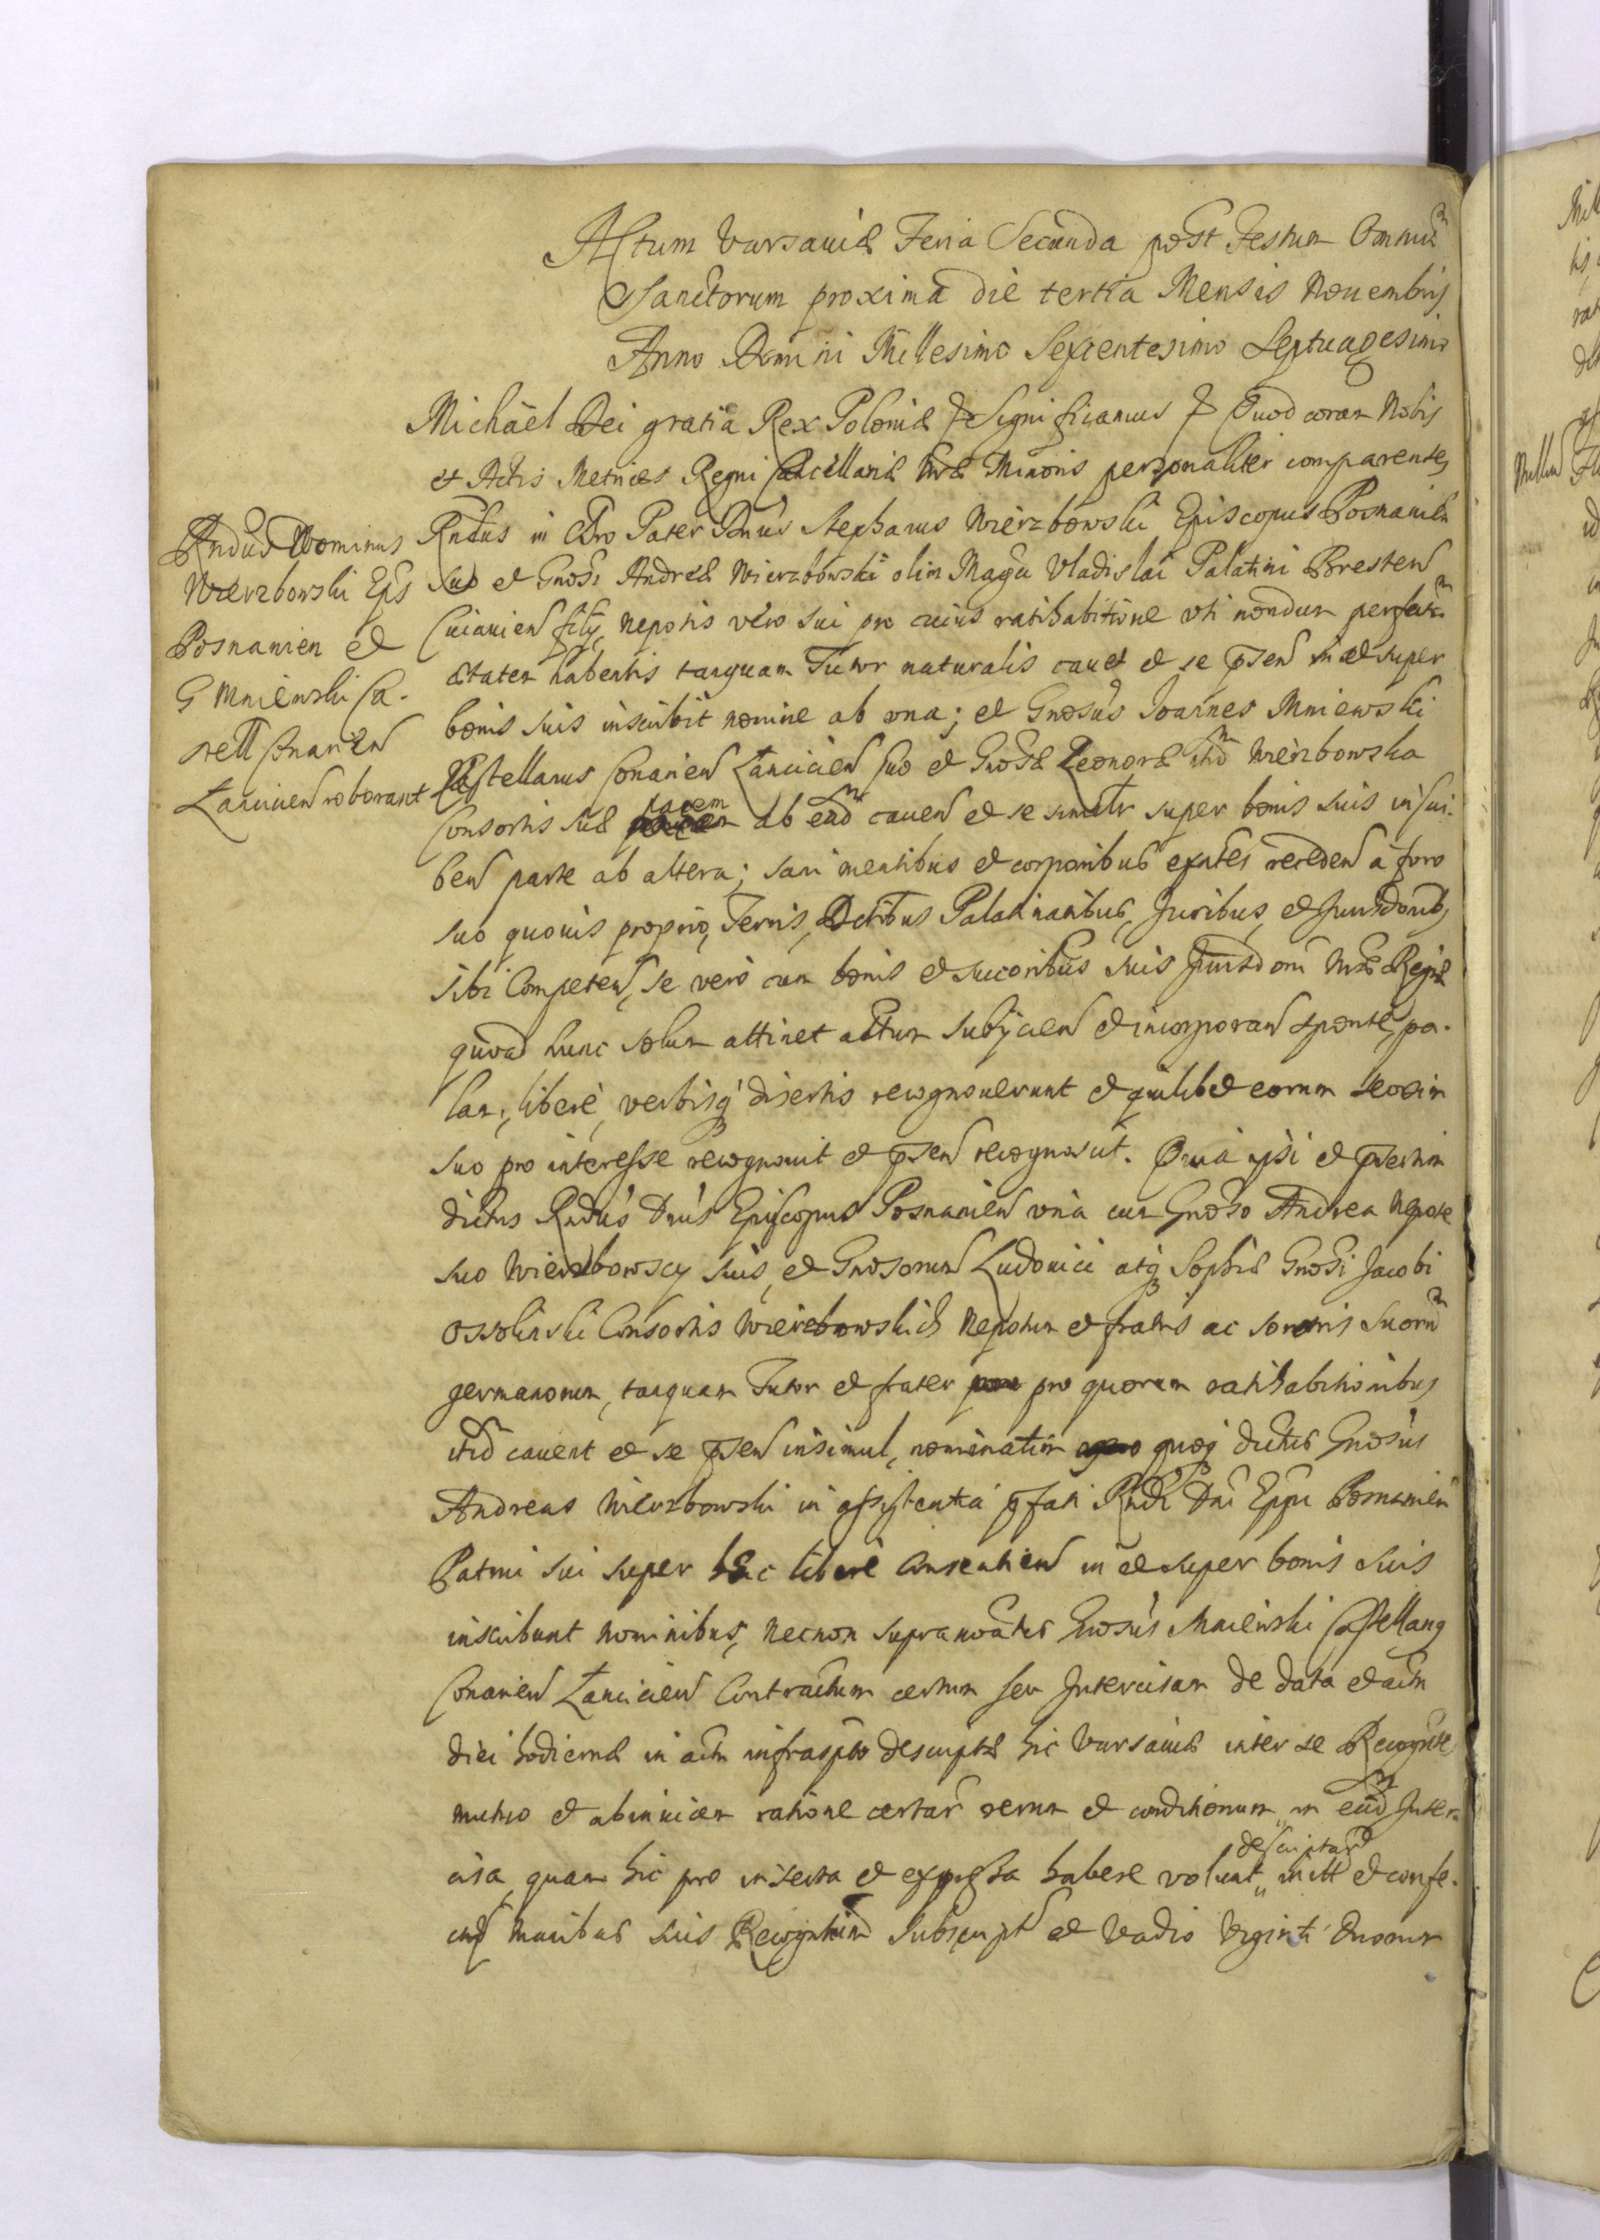 Actum Varsaviæ Feria Secunda post Festum Omniũ
Sanctorum proxima die tertia Mensis Nouembris
Anno Domini Millesimo Sexcentesimo Septuagesimo
Michaël Dei gratia Rex Poloniæ & Significamus & Quod coram Nobis
et Actis Metrices Regni Cancellariæ Nræ Minoris personaliter comparentes
Rndus in Chro Pater Dnus Stephanus Wierzbowski Episcopus Posnanien
suo et Gnosi Andreæ Wierzbowski olim Magci Vladislai Palatini Bresten
Cuiauien filij, nepotis vero sui pro cuius ratihabitione uti nondum perfectã
ætatem habentis tanquam Tutor naturalis cauet et se pṡen in et super
bonis suis inscribit nomine ab una; et Gnosus Joannes Mniewski
Castellanus Conarien Lancicien suo et Gnosæ Leonoræ itid Wierzbowska
Consortis suæ parem ab ead cauen et se similr super bonis suis inscri-
ben parte ab altera; sani mentibus et corporibus exntes receden a foro
suo quouis proprio, Terris, Dctibus Palatinatibus, Juribus, et Jurisdonib,
sibi Competen, se vero cum bonis et succoribus suis Jurisdoni Nræ Regiæ
quoad hunc solum attinet actum subijcien et incorporan sponte, pa-
lam, libere, verbisq disertis recognouerunt et quilibet eorum seorsim
suo pro interesse recognouit et pṡen recognoscit. Quia ipsi et pṡertim
dictus Rndus Dnus Episcopus Posnanien una cum Gnoso Andrea Nepote
suo Wierzbowscy suis, et Gnosorum Ludouici atq Sophiæ Gnosi Jacobi
Ossolinski Consortis Wierzbowskich Nepotum et fratris ac sororis suorũ
germanorum, tanquam Tutor et frater pro quorum ratihabitionibus
itid cauent et se pṡen insimul, nominatim quoq dictus Gnosus
Andreas Wierzbowski in assistentia pfati Rndi Dni Eppi Posnanien
Patrui sui super hæc libere consentien in et super bonis suis
inscribunt nominibus, necnon supranoatus Gnosus Mniewski Castellang
Conarien Lancicien Contractum certum seu Intercisam de data et actu
diei hodiernæ in actu infrasptо descriptæ hic Varsauiæ inter se Recognte
mutuo et abinuicem ratione certar rerum et conditionum „ in ead Inter-
cisa, quam hic pro inserta et expressa habere volunt „ descriptar initt et confe-
ctũ manibus suis Recogntium subscript et Vadio Viginti Duorum
Rndus Dominus
Wierzbowski Eps
Posnanien et
G Mniewski Ca-
stell Conarien
Lancicien roborant